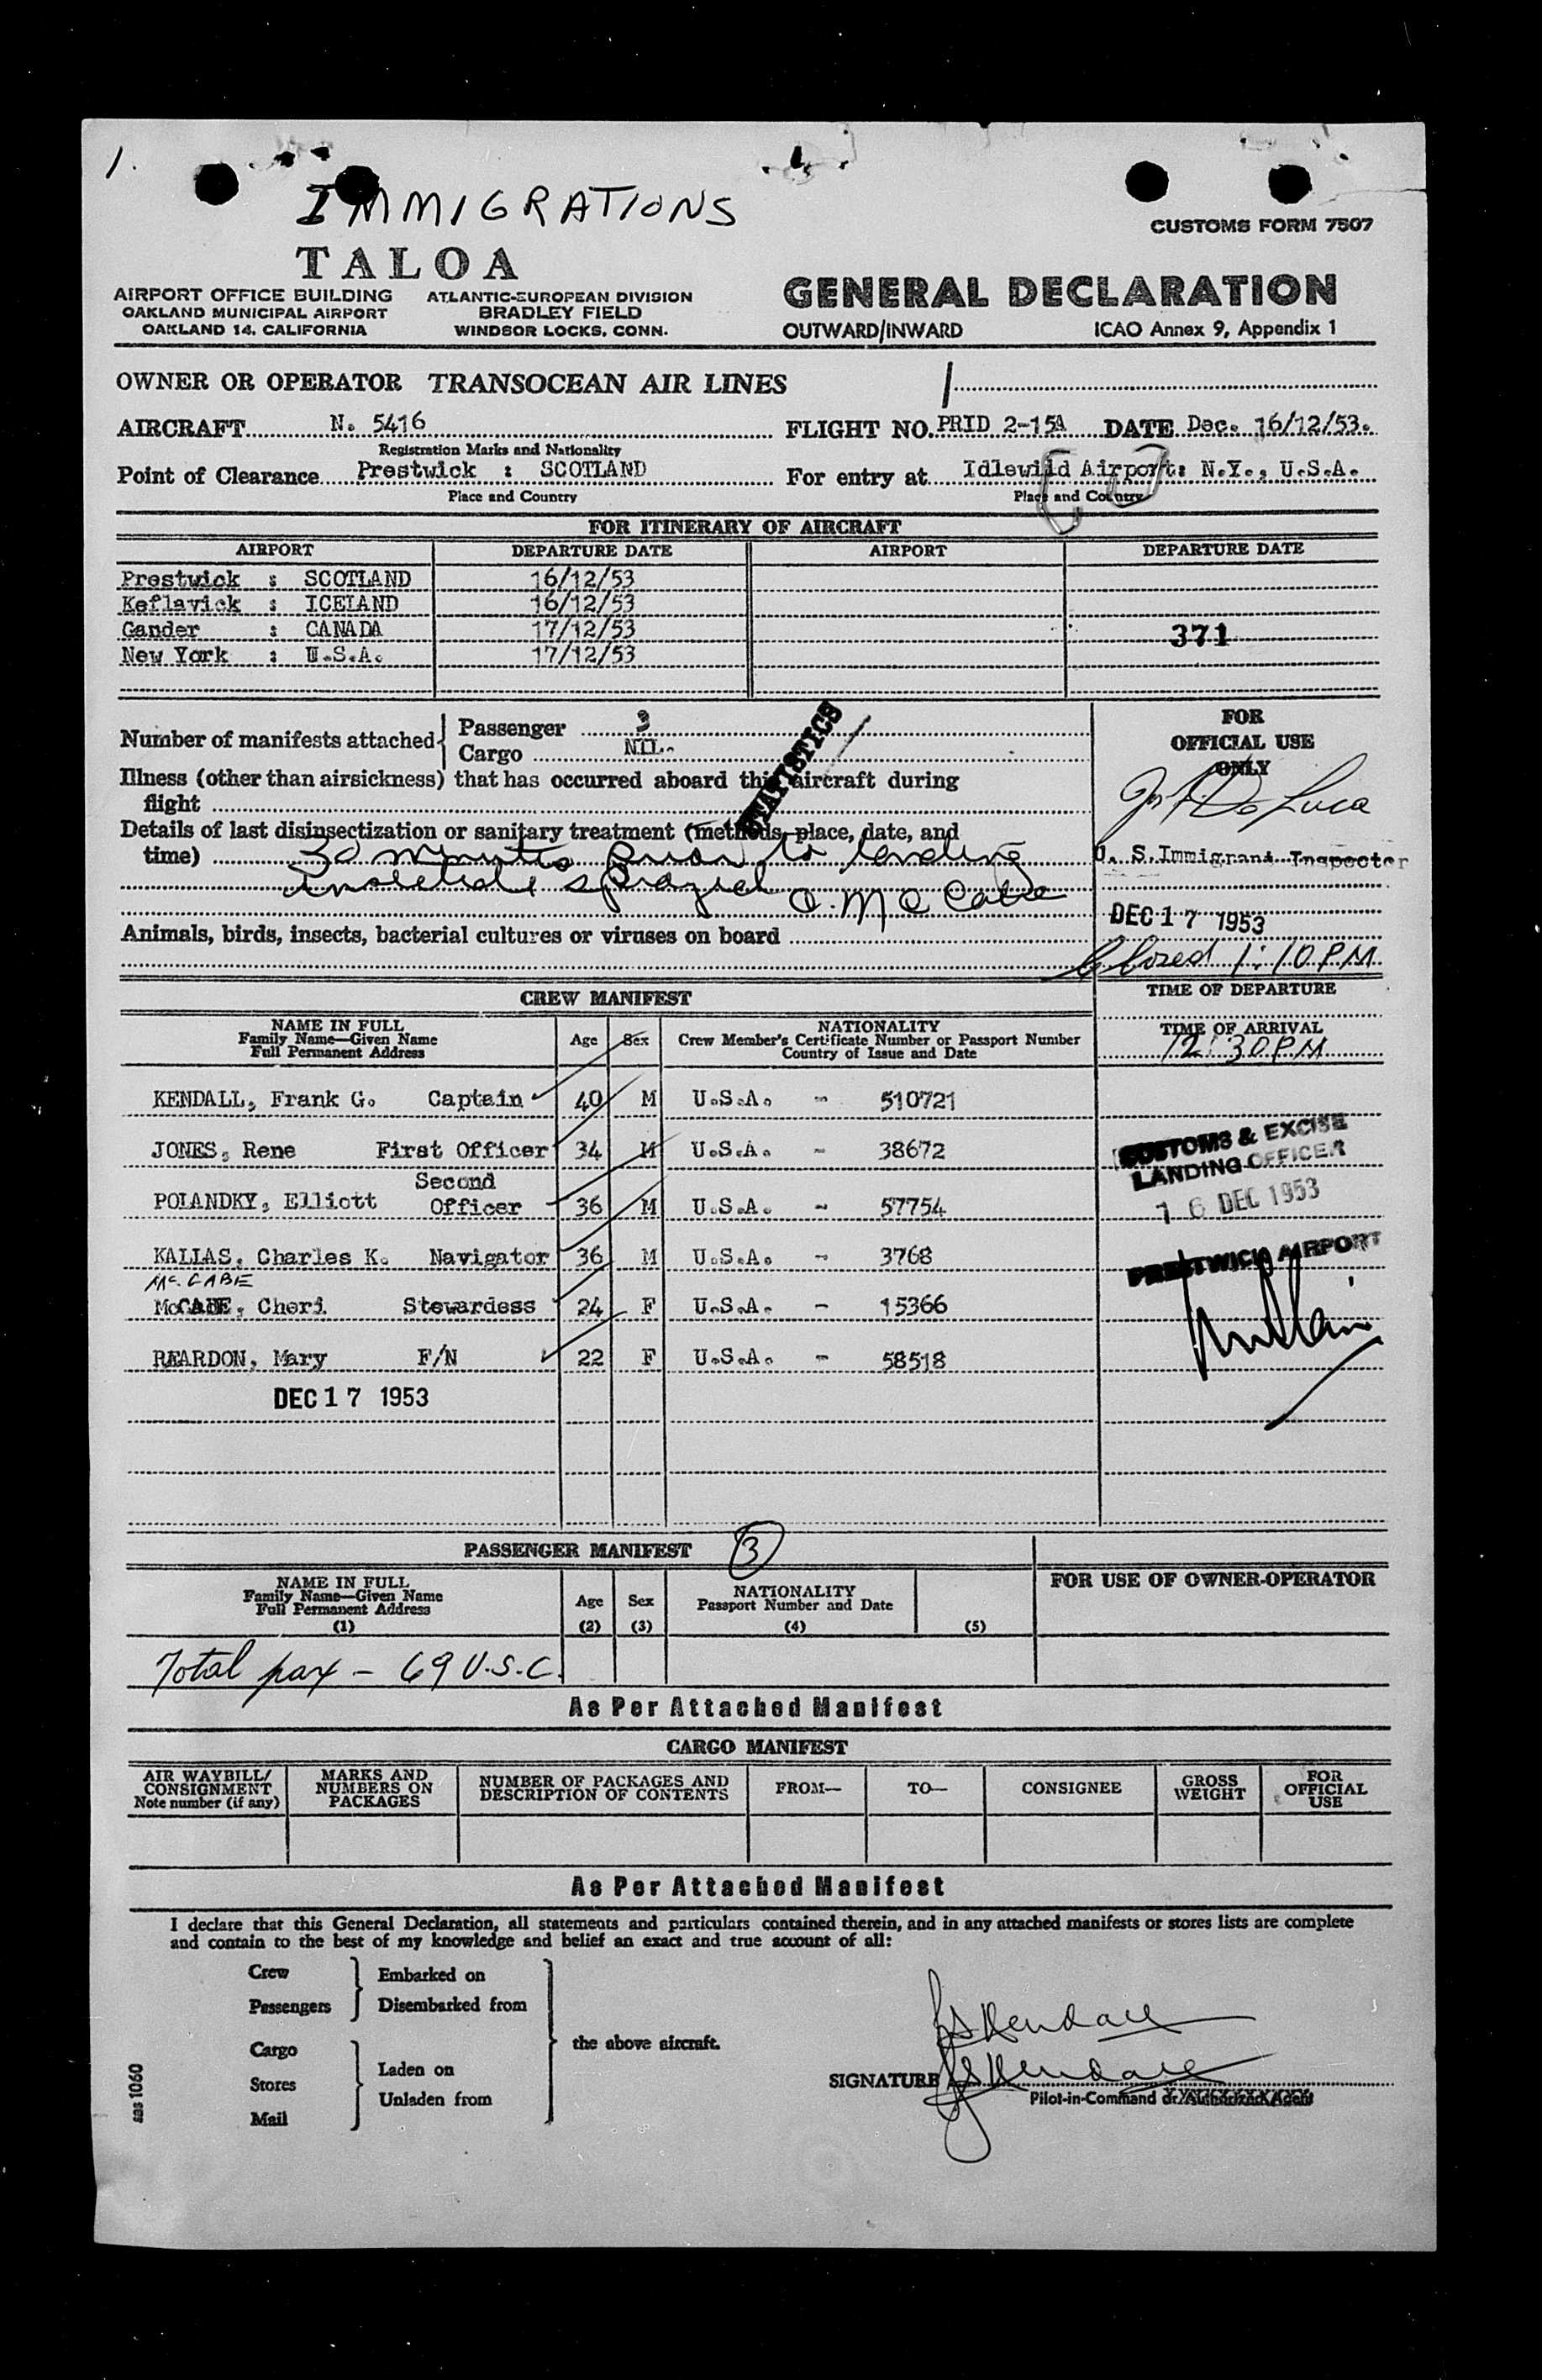 1.
IMMIGRATIONS
CUSTOMS FORM 7507
TALOA
AIRPORT OFFICE BUILDING
OAKLAND MUNICIPAL AIRPORT
OAKLAND 14, CALIFORNIA
ATLANTIC-EUROPEAN DIVISION
BRADLEY FIELD
WINDSOR LOCKS, CONN.
GENERAL DECLARATION
OUTWARD/INWARD ICAO Annex 9, Appendix 1
OWNER OR OPERATOR TRANSOCEAN AIR LINES
AIRCRAFT N. 5416 FLIGHT NO. PRID 2-15A DATE Dec. 16/12/53.
Registration Marks and Nationality
Point of Clearance Prestwick : SCOTLAND For entry at Idlewild Airport: N.Y., U.S.A.
Place and Country Place and Country
FOR ITINERARY OF AIRCRAFT
AIRPORT DEPARTURE DATE AIRPORT DEPARTURE DATE
Prestwick : SCOTLAND 16/12/53
Keflavick : ICELAND 16/12/53
Gander : CANADA 17/12/53
371
New York : U.S.A. 17/12/53
Number of manifests attached
Passenger 3
Cargo NIL.
STATISTICS
Illness (other than airsickness) that has occurred aboard this aircraft during
flight
Details of last disinsectization or sanitary treatment (methods, place, date, and
time) 30 minutes prior to landing
insecticide sprayed C. McCabe
Animals, birds, insects, bacterial cultures or viruses on board
FOR
OFFICIAL USE
ONLY
De Luca
U. S. Immigrant Inspector
DEC 17 1953
Closed 1:10 P.M.
TIME OF DEPARTURE
TIME OF ARRIVAL
12:30 P.M
CREW MANIFEST
NAME IN FULL
Family Name—Given Name
Full Permanent Address
Age Sex
NATIONALITY
Crew Member's Certificate Number or Passport Number
Country of Issue and Date
KENDALL, Frank G. Captain 40 M U.S.A. - 510721
JONES, Rene First Officer 34 M U.S.A. - 38672
Second
POLANDKY, Elliott Officer 36 M U.S.A. - 57754
KALLAS, Charles K. Navigator 36 M U.S.A. - 3768
McCABE
McCABE, Cheri Stewardess 24 F U.S.A. - 15366
REARDON, Mary F/N 22 F U.S.A. - 58518
DEC 17 1953
CUSTOMS & EXCISE
LANDING OFFICER
16 DEC 1953
PRESTWICK AIRPORT
PASSENGER MANIFEST 3
NAME IN FULL
Family Name—Given Name
Full Permanent Address
(1)
Age
(2)
Sex
(3)
NATIONALITY
Passport Number and Date
(4)
(5)
FOR USE OF OWNER-OPERATOR
Total pax - 69 U.S.C.
As Per Attached Manifest
CARGO MANIFEST
AIR WAYBILL/
CONSIGNMENT
Note number (if any)
MARKS AND
NUMBERS ON
PACKAGES
NUMBER OF PACKAGES AND
DESCRIPTION OF CONTENTS
FROM—
TO—
CONSIGNEE
GROSS
WEIGHT
FOR
OFFICIAL
USE
As Per Attached Manifest
I declare that this General Declaration, all statements and particulars contained therein, and in any attached manifests or stores lists are complete
and contain to the best of my knowledge and belief an exact and true account of all:
Crew
Passengers
Embarked on
Disembarked from
Cargo
Stores
Mail
Laden on
Unladen from
the above aircraft.
FG Kendall
SIGNATURE FG Kendall
Pilot-in-Command or Authorized Agent
sas 1060